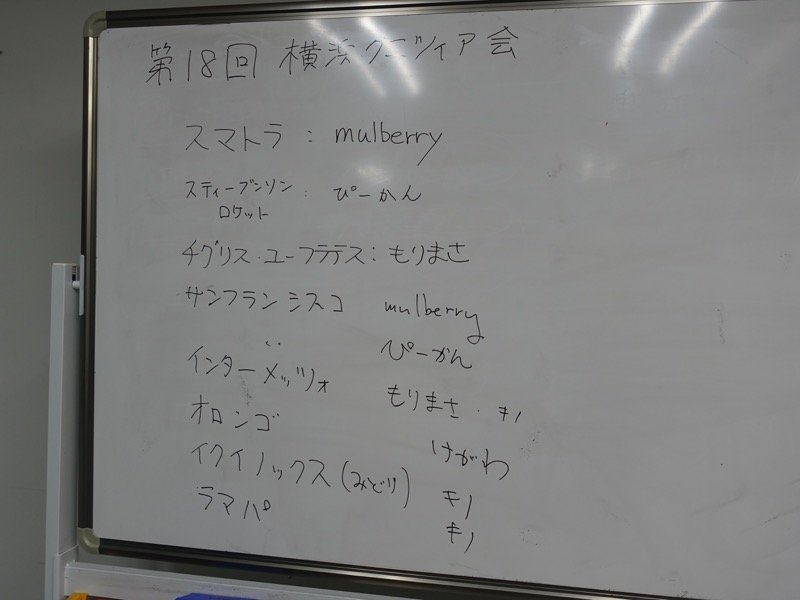 第18回 横浜クニツィア会
スマトラ : mulberry
スティーブンソン
ロケット : ぴーかん
チグリス・ユーフラテス : もりまさ
サンフランシスコ mulberry
ぴーかん
インターメッツォ もりまさ・キノ
オロンゴ けがわ
イクイノックス(みどり) キノ
ラマパ キノ